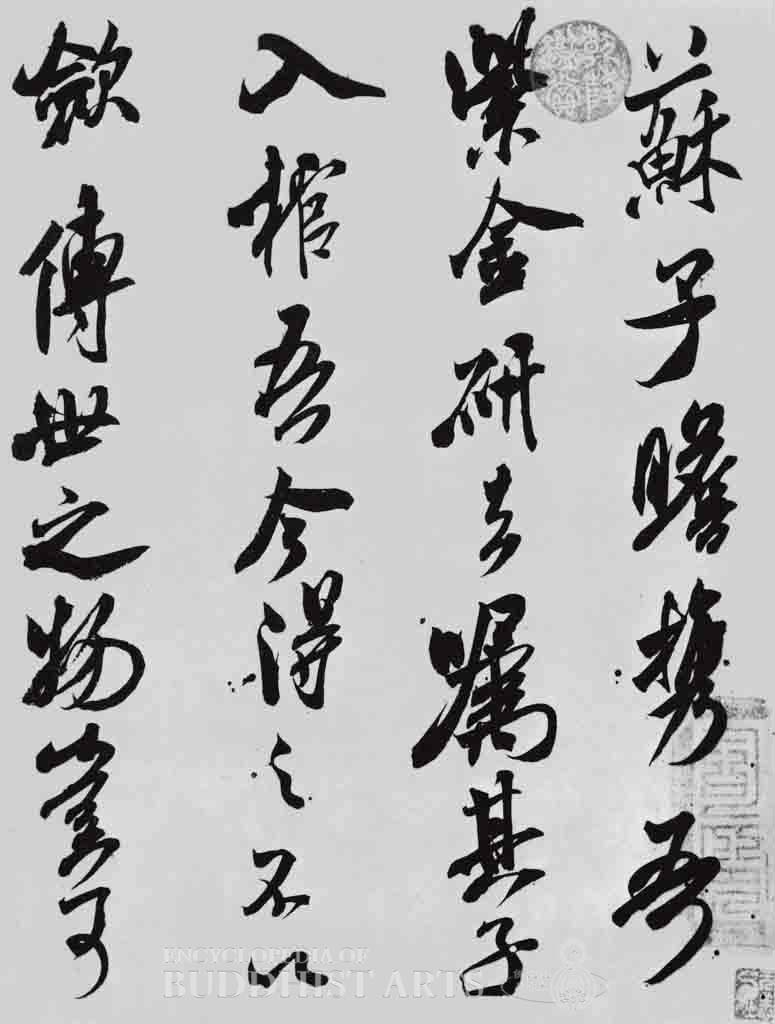 蘇子瞻携吾
紫金研去囑其子
入棺吾今得之不以
歛傳世之物豈可
ENCYCLOPEDIA OF
BUDDHIST ARTS